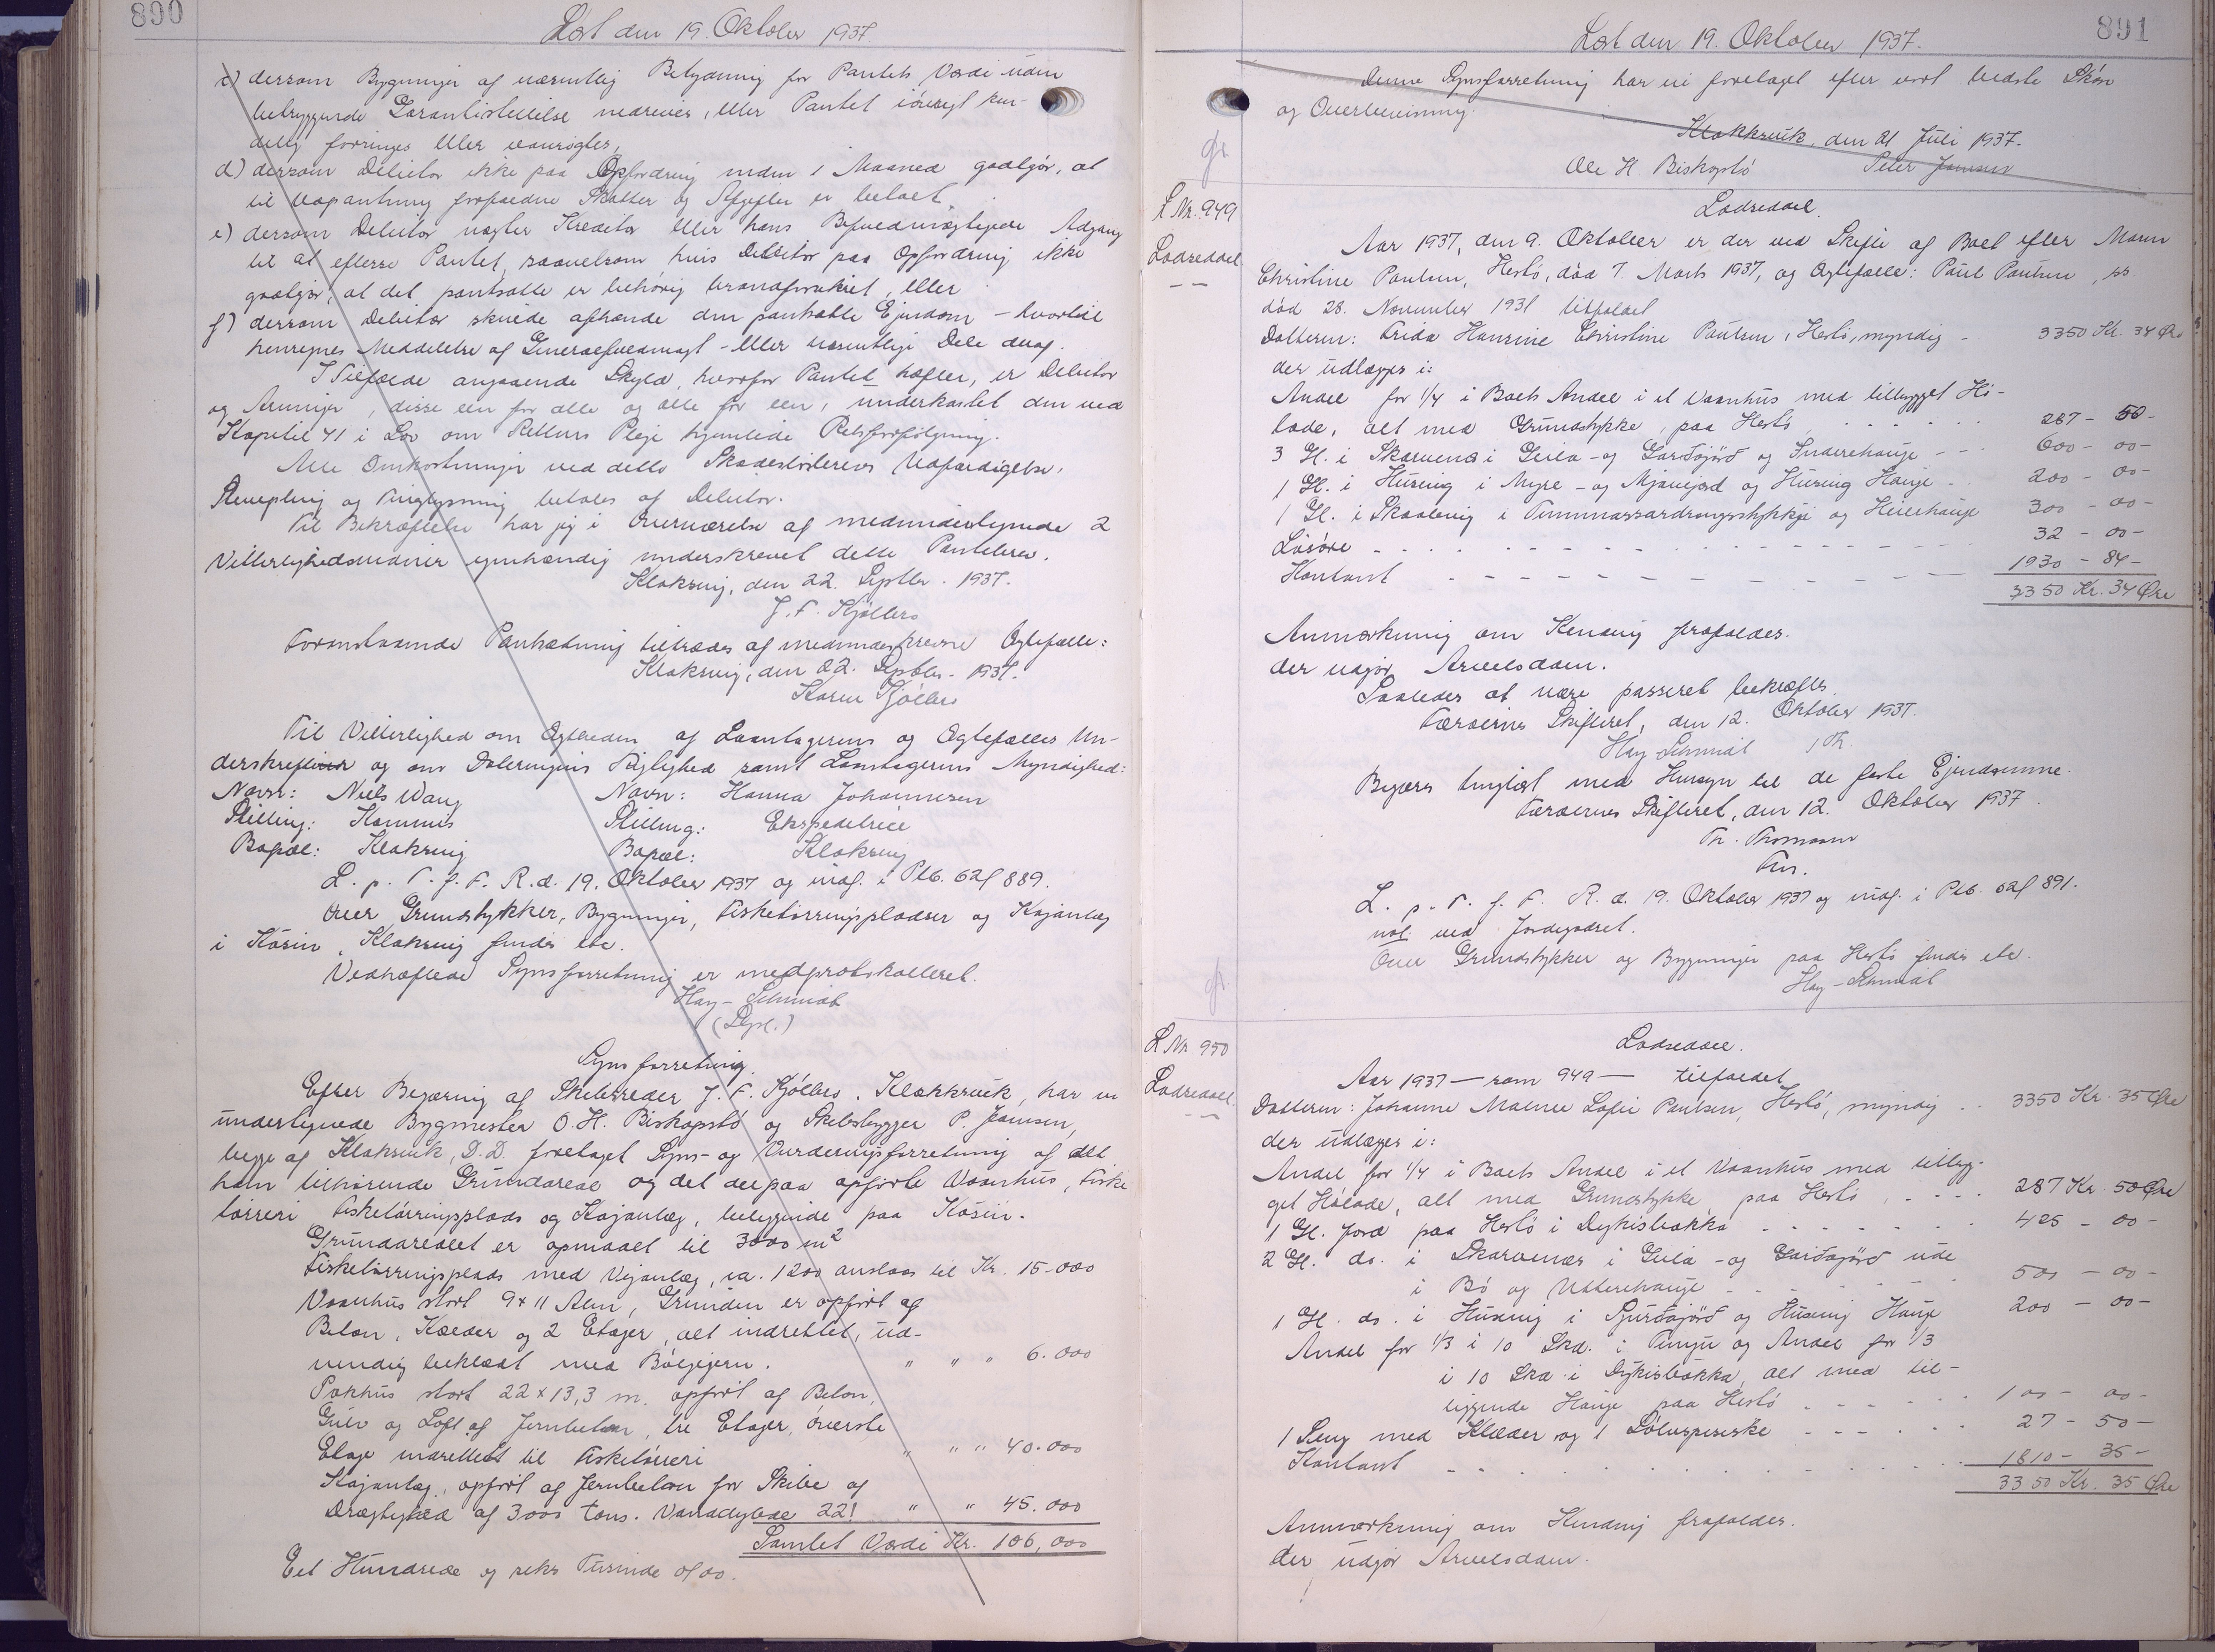 890
Læst den 19. Oktober 1937.
c) dersom Bygninger af væsentlig Betydning for Pantets Værdi uden
betryggende Garantistillelse nedrives, eller Pantet iøvrigt ken-
delig forringes eller vanrøgtes,
d) dersom Debitor ikke paa Opfordring inden 1 Maaned godtgør, at
til Udpantning forfaldne Skatter og Afgifter er betalt,
e) dersom Debitor nægter Kreditor eller hans Befuldmægtigede Adgang
til at efterse Pantet, saavelsom hvis Debitor paa Opfordring ikke
godtgør, at det pantsatte er behørig brandforsikret, eller
f) dersom Debitor skulde afhænde den pantsatte Ejendom - hvortil
henregnes Meddelelse af Generalfuldmagt - eller væsentlige Dele deraf.
I Tilfælde angaaende Skyld, hvorfor Pantet hæfter, er Debitor
og Arvinger, disse een for alle og alle for een, underkastet den ved
Kapitel 41 i Lov om Rettens Pleje hjemlede Retsforfølgning.
Alle Omkostninger ved dette Skadesløsbrevs Udfærdigelse,
Stempling og Tinglysning betales af Debitor.
Til Bekræftelse har jeg i Overværelse af medunderskrevne 2
Vitterlighedsvidner egenhændig underskrevet dette Pantebrev.
Klaksvig, den 22. Septbr. 1937.
J. F. Kjølbro
Foranstaaende Pantsætning tiltrædes af medunderskrevne Ægtefælle:
Klaksvig, den 22. Septbr. 1937.
Karen Kjølbro
Til Vitterlighed om Ægtheden af Laantagerens og Ægtefælles Un-
derskrifter og om Dateringens Rigtighed samt Laantagerens Myndighed:
Navn: Niels Wang Navn: Hanna Johannesen
Stilling: Kommis Stilling: Ekspeditrice
Bopæl: Klaksvig Bopæl: Klaksvig
L. p. T. f. F. R. d. 19. Oktober 1937 og indf. i Ptb. 62 f 889.
Over Grundstykker, Bygninger, Fisketørringspladser og Kajanlæg
i Kósin, Klaksvig findes etc.
Vedhæftede Synsforretning er medprotokolleret.
Hay-Schmidt
(Dpl.)
Synsforretning.
Efter Begæring af Skibsreder J. F. Kjølbro, Klakksvik, har vi
undertegnede Bygmester O. H. Biskopstø og Skibsbygger P. Joensen,
begge af Klaksvik, D. D. foretaget Syns- og Vurderingsforretning af det
ham tilhørende Grundareal og det derpaa opførte Vaanhus, Fiske
tørreri Fisketørringsplads og Kajanlæg, beliggende paa Kósin.
Grundarealet er opmaalt til 3000 m2
Fisketørringsplads med Vejanlæg, ca. 1200 anslaas til Kr. 15.000
Vaanhus stort 9 x 11 Alen, Grunden er opført af
Beton, Kælder og 2 Etager, alt indrettet, ud-
vendig beklædt med Bølgejern. " " " 6.000
Pakhus stort 22 x 13,3 m. opført af Beton,
Gulv og Loft af Jernbeton, tre Etager, øverste
Etage indrettet til Fisketørreri " " " 40.000
Kajanlæg, opført af Jernbeton for Skibe af
Drægtighed af 3000 tons. Vanddybde 22! " " 45.000
Samlet Værdi Kr. 106,000
Eet Hundrede og seks Tusinde 0/00.
891
Læst den 19. Oktober 1937.
Denne Synsforretning har vi foretaget efter vort bedste Skøn
og Overbevisning.
Klakksvik, den 21 Juli 1937.
Ole H. Biskopstø Peter Joensen
gr.
L Nr. 949
Lodseddel
Lodseddel.
Aar 1937, den 9. Oktober er der ved Skifte af Boet efter Maren
Christine Poulsen, Hestø, død 7. Marts 1937, og Ægtefælle: Paul Poulsen, ss.
død 28. November 1931 tilfaldet
Datteren: Frida Hansine Christine Poulsen, Hestø, myndig - 3350 Kr. 34 Øre
der udlægges i:
Andel for 1/4 i Boets Andel i et Vaanhus med tilbygget Hø-
lade, alt med Grundstykke, paa Hestø . . . . . . 287 - 50 -
3 Gl. i Skarvenes i Geila - og Garðajørð og Inderehauge - - 600 - 00 -
1 Gl. i Húseng i Myre - og Mjavajord og Húseng Hauge - 200 - 00 -
1 Gl. i Skaaleng i Tummassardrengsstykkje og Heilehauge 300 - 00 -
Løsøre - - - - - - - - 32 - 00 -
Kontant - - - - - - - - 1930 - 84 -
3350 Kr. 34 Øre
Anmærkning om Kending forefaldes.
der udgør Arvelodden.
Saaledes at være passeret bekræftes.
Færøernes Skifteret, den 12. Oktober 1937.
Hay-Schmidt / Th.
Begæres tinglæst med Hensyn til de faste Ejendomme.
Færøernes Skifteret, den 12. Oktober 1937.
Th. Thomsen
Fm.
L. p. T. f. F. R. d. 19. Oktober 1937 og indf. i Ptb. 62 f 891.
not. ved Jordegodset.
Over Grundstykker og Bygninger paa Hestø findes etc.
Hay-Schmidt
gr.
L Nr 950
Lodseddel.
Lodseddel.
Aar 1937 — som 949 — tilfaldet
Datteren: Johanne Malene Sofie Poulsen, Hestø, myndig . . 3350 Kr. 35 Øre
der udlægges i:
Andel for 1/4 i Boets Andel i et Vaanhus med tilbyg-
get Hølade, alt med Grundstykke paa Hestø . - - - . 287 Kr. 50 Øre
1 Gl. Jord paa Hestø i Dykisbakka - - - - - 425 - 00 -
2 Gl. do. i Skarvenes i Geila - og Garðajørð ude
i Bø og Uttarehauge - - - - 500 - 00 -
1 Gl. do. i Húseng i Sjúrðajørð og Húseng Hauge 200 - 00 -
Andel for 1/3 i 10 Skd. i Tingu og Andel for 1/3
i 10 Skd. i Dykisbakka, alt med til-
liggende Hauge paa Hestø . - - - - 100 - 00 -
1 Seng med Klæder og 1 Sølvspiseske - - - . . 27 - 50 -
Kontant - - . . . . . . 1810 - 35 -
3350 Kr. 35 Øre
Anmærkning om Kending forefaldes.
der udgør Arvelodden.